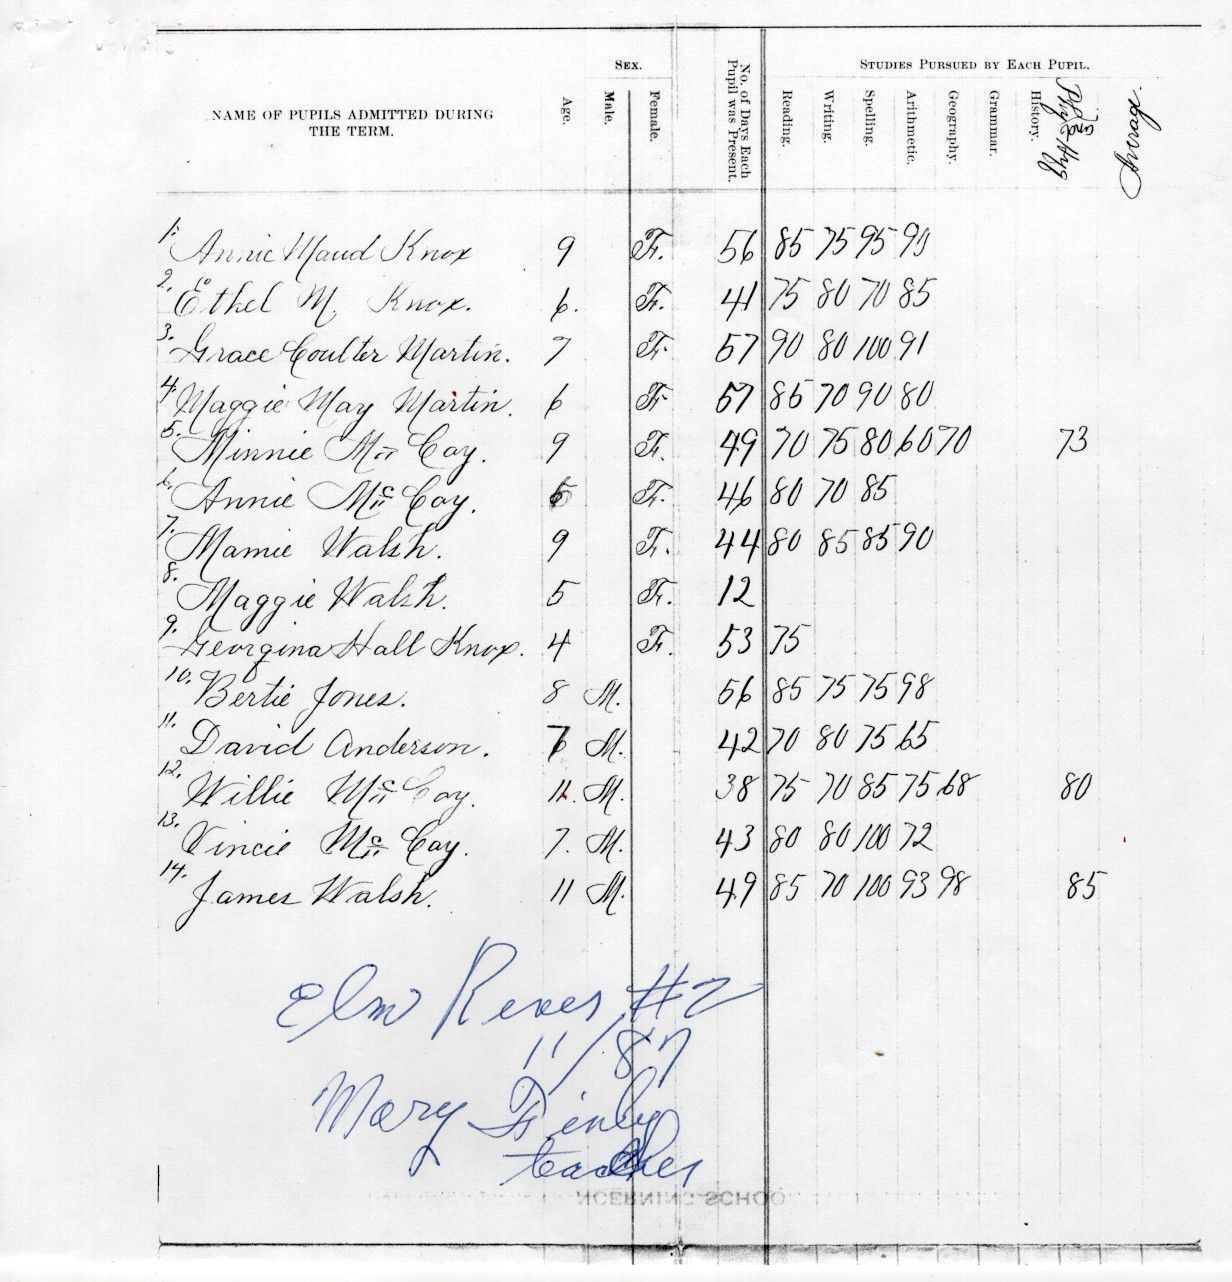 SEX.
STUDIES PURSUED BY EACH PUPIL.
NAME OF PUPILS ADMITTED DURING
THE TERM.
Age.
Male.
Female.
No. of Days Each
Pupil was Present.
Reading.
Writing.
Spelling.
Arithmetic.
Geography.
Grammar.
History.
Average.
1. Annie Maud Knox 9 F. 56 85 75 95 90
2. Ethel M. Knox. 6. F. 41 75 80 70 85
3. Grace Coulter Martin. 7 F. 57 90 80 100 91
4. Maggie May Martin. 6 F 57 85 70 90 80
5. Minnie Mc Coy. 9 F. 49 70 75 80 60 70 73
6. Annie Mc Coy. F. 46 80 70 85
7. Mamie Walsh. 9 F. 44 80 85 85 90
8. Maggie Walsh. 5 F. 12
9. Georgina Hall Knox. 4 F. 53 75
10. Bertie Jones. 8 M. 56 85 75 75 98
11. David Anderson. M. 42 70 80 75 65
12. Willie Mc Coy. 11. M. 38 75 70 85 75 68 80
13. Vincie Mc Coy. 7. M. 43 80 80 100 72
14. James Walsh. 11 M. 49 85 70 100 93 98 85
Elm River #2
11/87
Mary Finly
teacher
NCERNING SCHOO